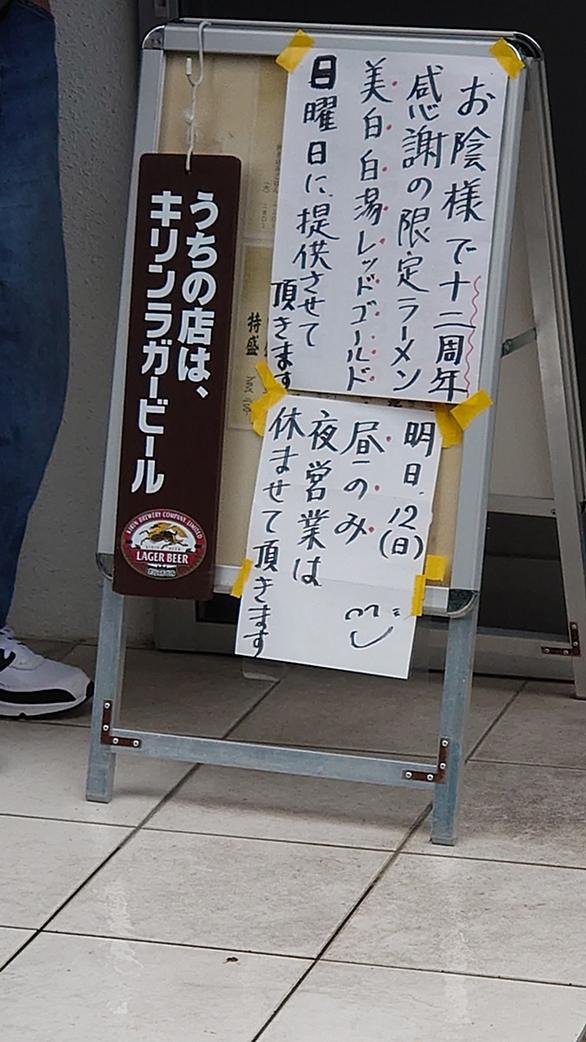 お陰様で十二周年
感謝の限定ラーメン
美白白湯レッドゴールド
日曜日に提供させて
頂きます
明日.12(日)
昼のみ
夜営業は
休ませて頂きます
うちの店は、
キリンラガービール
KIRIN BREWERY COMPANY, LIMITED
LAGER BEER
特盛